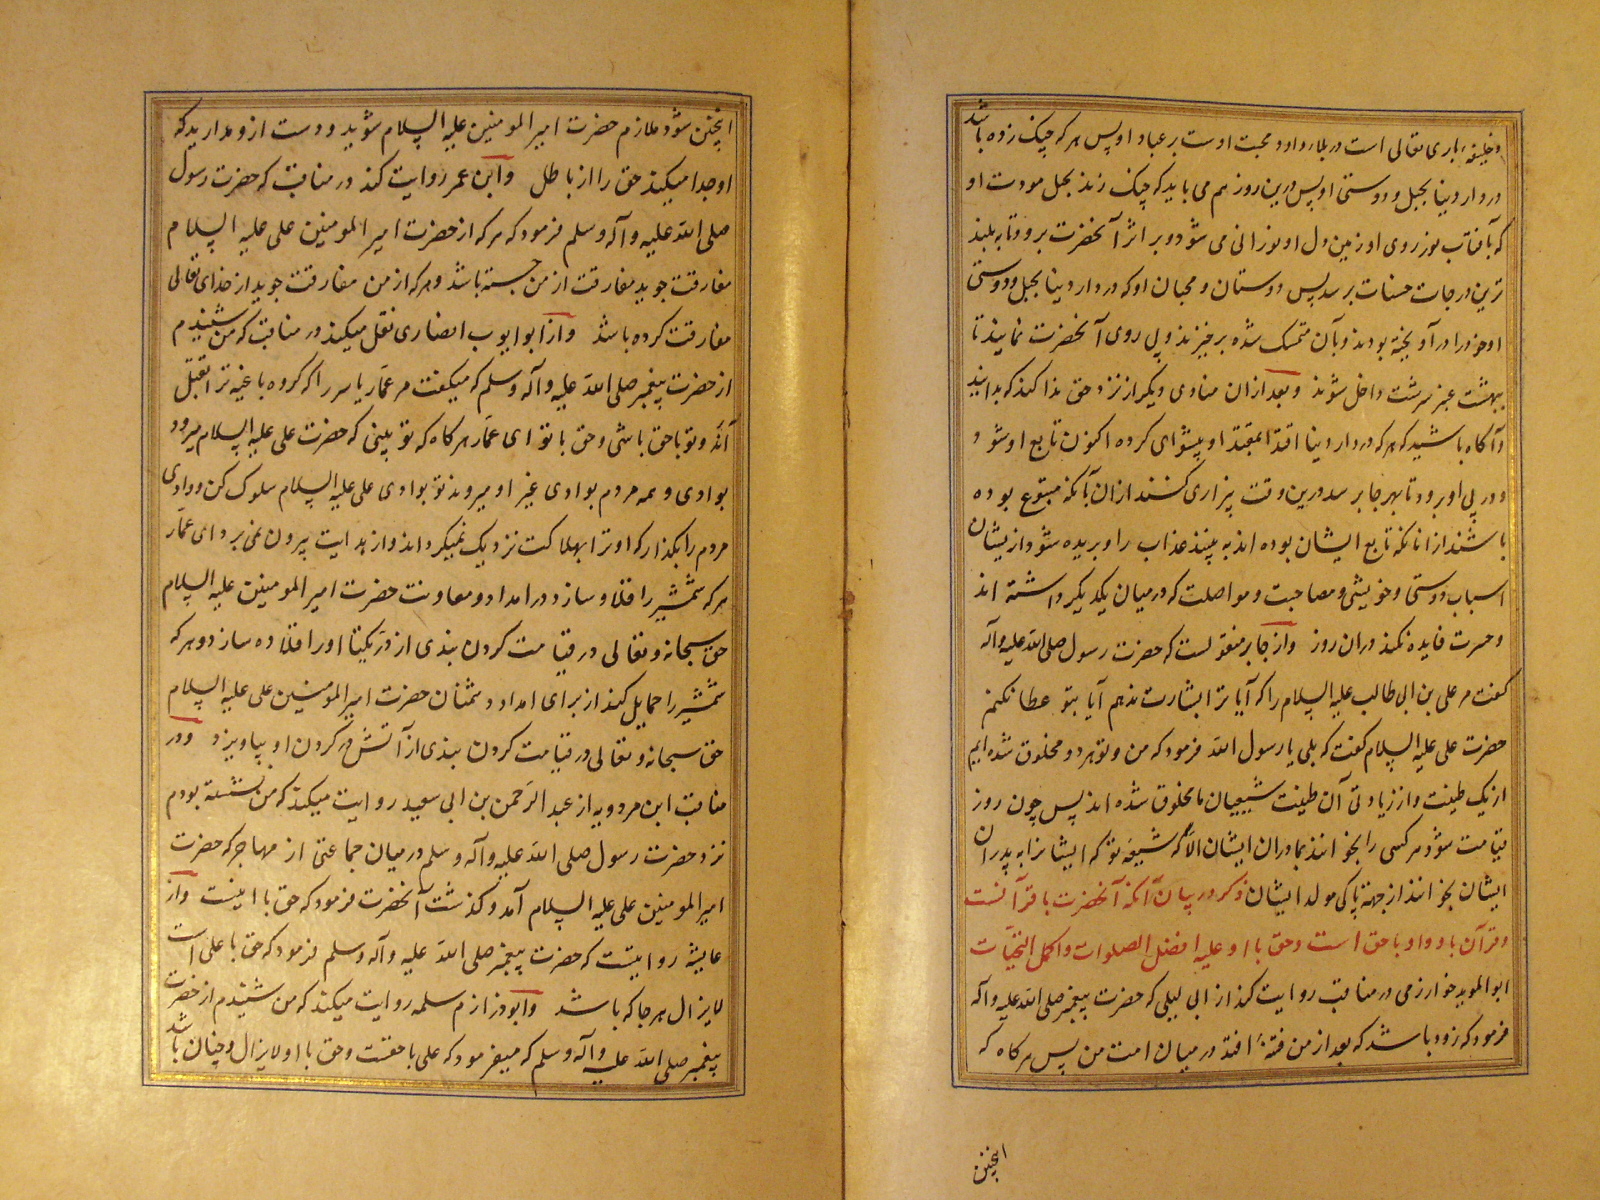 و خلیفهٔ باری تعالی است در بلاد او و محبت اوست بر عباد او پس هر که چنک زده باشد
در دار دنیا بحبل و دوستی او پس درین روز هم می باید که چنک زند بحبل مودت او
که بآفتاب نور روی او زمین دل او نورانی می شود و بر اثر آنحضرت برود تا به بلند
ترین درجات حسنات برسد پس دوستان و محبان او که در دار دنیا بحبل و دوستی
او خود را در آویخته بودند و بآن متمسک شده برخیزند و پی روی آنحضرت نمایند تا
ببهشت عنبر سرشت داخل شوند و بعد ازان منادی دیگر از نزد حق ندا کند که بدانید
و آگاه باشید که هر که در دار دنیا اقتدا بمقتدا و پیشوای کرده اکنون تابع او شود
و در پی او برود تا بهر جا برسد درین وقت بیزاری کنند ازان آنکه متبوع بوده
باشند از انانکه تابع ایشان بوده اند به بینند عذاب را و بریده شود از یشان
اسباب دوستی و خویشی و مصاحبت و مواصلت که در میان یکدیگر داشته اند
و حسرت فایده نکند دران روز و از جابر منقولست که حضرت رسول صلی الله علیه و آله
گفت مر علی بن ابی طالب علیه السلام را که آیا ترا بشارت ندهم آیا بتو عطا نکنم
حضرت علی علیه السلام گفت که بلی یا رسول الله فرمود که من و تو هر دو مخلوق شده ایم
از یک طینت و از زیادتی آن طینت شیعیان ما مخلوق شده اند پس چون روز
قیامت شود هر کسی را بخوانند بمادران ایشان الا که شیعهٔ تو که ایشانرا به پدران
ایشان بخوانند از جهة پاکی مولد ایشان ذکر در بیان آنکه آنحضرت با قرآنست
و قرآن با او و او با حق است و حق با او علیه افضل الصلوات و اکمل التحیات
ابو الموید خوارزمی در مناقب روایت کند از ابی لیلی که حضرت پیغمبر صلی الله علیه و آله
فرمود که زود باشد که بعد از من فتنهٔ افتد در میان امت من پس هر گاه که
اینچنین
اینچنین شود ملازم حضرت امیر المومنین علیه السلام شوید و دست ازو مدارید که
او جدا میکند حق را از باطل و ابن عمر روایت کند در مناقب که حضرت رسول
صلی الله علیه و آله و سلم فرمود که هر که از حضرت امیر المومنین علی علیه السلام
مفارقت جوید مفارقت از من جسته باشد و هر که از من مفارقت جوید از خدای تعالی
مفارقت کرده باشد و از ابو ایوب انصاری نقل میکند در مناقب که من شنیدم
از حضرت پیغمبر صلی الله علیه و آله و سلم که میگفت مر عمار یاسر را که گروه باغیه ترا بقتل
آرند و تو با حق باشی و حق با تو ای عمار هر گاه که تو بینی که حضرت علی علیه السلام میرود
بوادی و همه مردم بوادی غیر او میروند تو بوادی علی علیه السلام سلوک کن و وادی
مردم را بگذار که او ترا بهلاکت نزدیک نمیگرداند و از هدایت بیرون نمی برد ای عمار
هر که شمشیر را قلاده سازد در امداد و معاونت حضرت امیر المومنین علیه السلام
حق سبحانه و تعالی در قیامت گردن بندی از در یکتا او را قلاده سازد و هر که
شمشیر را حمایل کند از برای امداد دشمنان حضرت امیر المومنین علی علیه السلام
حق سبحانه و تعالی در قیامت گردن بندی از آتش در گردن او بیاویزد و در
مناقب ابن مردویه از عبد الرحمن بن ابی سعید روایت میکند که من نشسته بودم
نزد حضرت رسول صلی الله علیه و آله و سلم در میان جماعتی از مهاجر که حضرت
امیر المومنین علی علیه السلام آمد و گذشت آنحضرت فرمود که حق با اینست و از
عایشه روایتست که حضرت پیغمبر صلی الله علیه و آله و سلم فرمود که حق با علی است
لایزال هر جا که باشد و ابوذر از ام سلمه روایت میکند که من شنیدم از حضرت
پیغمبر صلی الله علیه و آله و سلم که میفرمود که علی با حقست و حق با او لایزال و چنان باشد